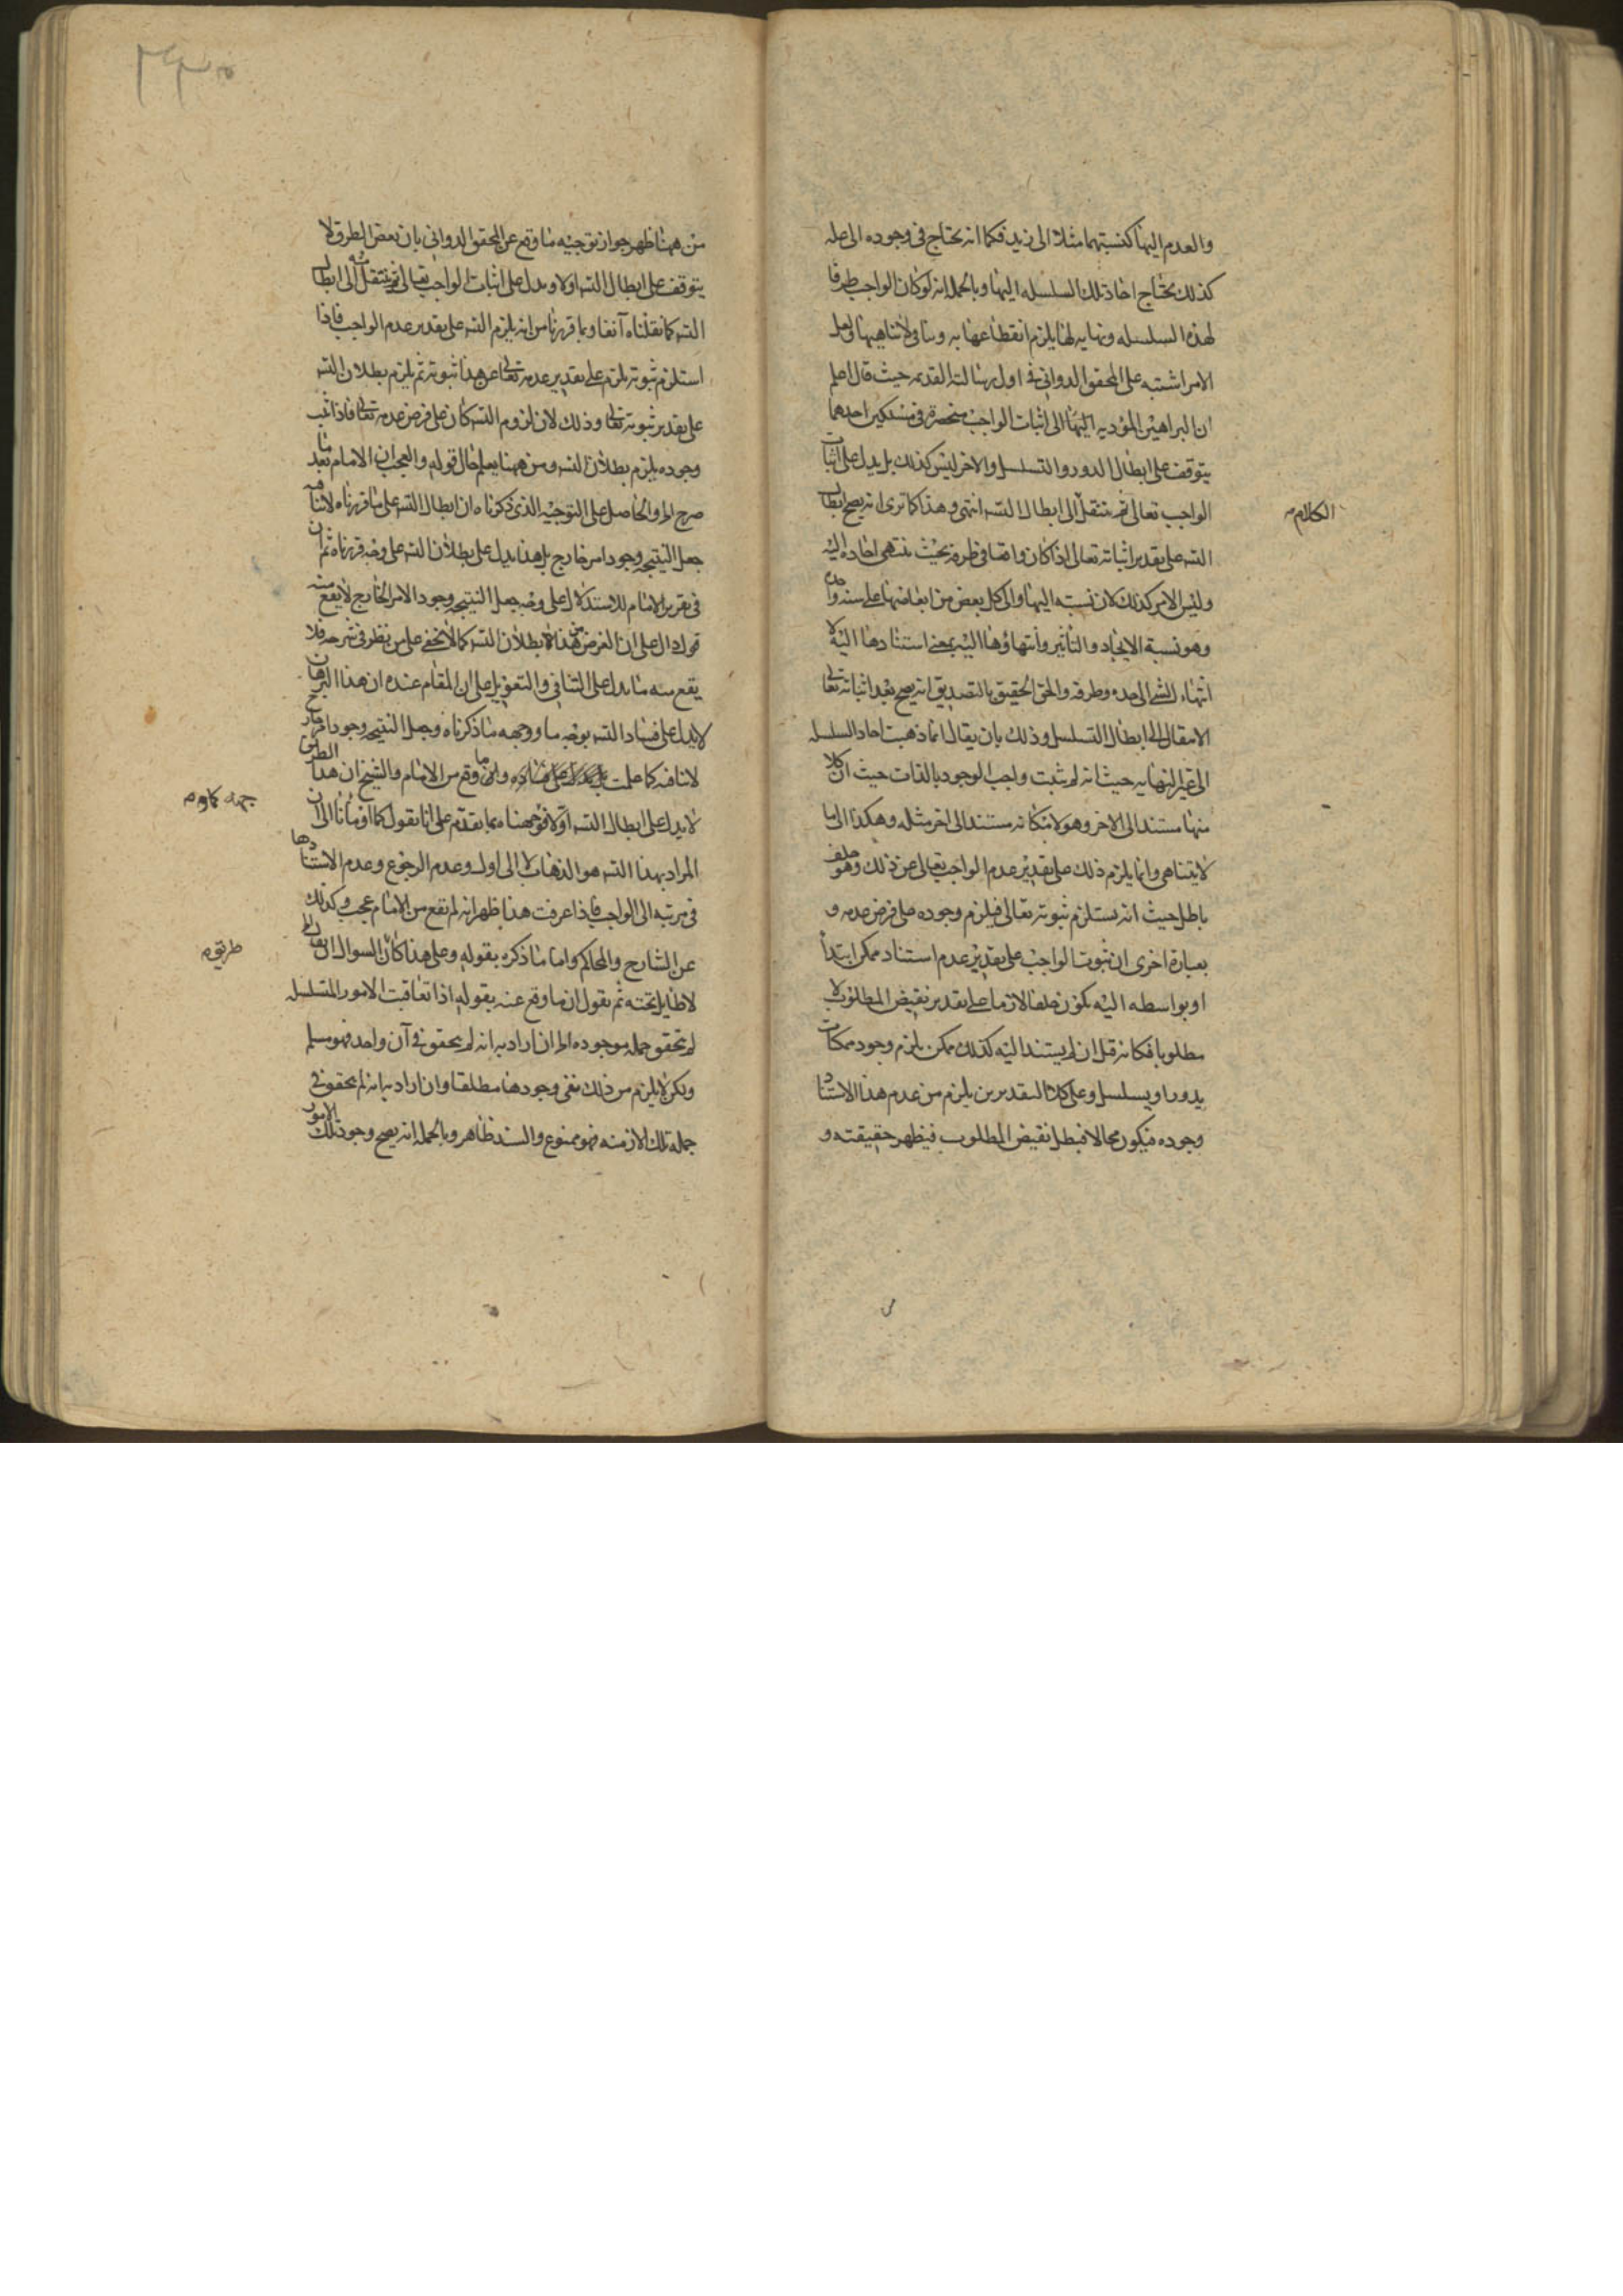 والعدم اليها كنسبتهما مثلا الى زيد فكما انه يحتاج فى وجوده الى عله
كذلك يحتاج احاد تلك السلسله اليها وبالجمله انه لو كان الواجب طرفا
لهذه السلسله ونهايه لها يلزم انقطاعها به وينافى لاتناهيها ولعل
الامر اشتبه على المحقق الدوانى فى اول رسالته القديمه حيث قال اعلم
ان البراهين المؤديه الى اثبات الواجب منحصرة فى مسلكين احدهما
يتوقف على ابطال الدور والتسلسل والاخر ليس كذلك بل يدل على اثبات
الواجب تعالى ثم ننتقل الى ابطال التسـ انتهى وهذا كما ترى انه يصح ابطال
الكلام
التسـ على تقدير اثباته تعالى اذا كان واقعا فى طرفه بحيث ينتهى احاده اليه
وليس الامر كذلك لان نسبته اليها والى كل بعض من ابعاضها على سنة واحده
وهو نسبة الايجاد والتأثير وانتهاؤها اليه بمعنى استنادها اليه لا
انتهاء الشىء الى حده وطرفه والحق الحقيق بالتصديق انه يصح بعد اثباته تعالى
الانتقال الى ابطال التسلسل وذلك بان يقال انما ذهبت احاد السلسله
الى غير النهايه حيث انه لم يثبت واجب الوجود بالذات حيث ان كلا
منها مستند الى الاخر وهو لامكانه مستند الى اخر مثله وهكذا الى ما
لا يتناهى وانما يلزم ذلك على تقدير عدم الواجب تعالى عن ذلك وهو خلف
باطل حيث انه يستلزم ثبوته تعالى فيلزم وجوده على فرض عدمه و
بعبارة اخرى ان ثبوت الواجب على تقدير عدم استناد ممكن ابتداء
او بواسطه اليه يكون خلفا لازما على تقدير نقيض المطلوب لا
مطلوبا فكانه قيل ان لم يستند اليه كذلك ممكن يلزم وجود ممكنات
يدور او يتسلسل وعلى كلا التقديرين يلزم من عدم هذا الاستناد
وجوده فيكون محالا فبطل نقيض المطلوب فيظهر حقيقته و
من ههنا ظهر جواز توجيه ما وقع عن المحقق الدوانى بان بعض الطرق لا
يتوقف على ابطال التسـ اولا ويدل على اثبات الواجب تعالى ثم ننتقل منه الى ابطال
التسـ كما نقلناه آنفا وبما قررنا من انه يلزم التسـ على تقدير عدم الواجب فاذا
استلزم ثبوته يلزم على تقدير عدمه تعالى عن هذا ثبوته ثم يلزم بطلان التسـ
على تقدير ثبوته تعالى وذلك لان لزوم التسـ كان على فرض عدمه تعالى فاذا ثبت
وجوده يلزم بطلان التسـ ومن ههنا يعلم حال قوله والعجب ان الامام بعد ما
صرح الخ والحاصل على التوجيه الذى ذكرناه ان ابطال التسـ على ما قررناه لا ينافيه
جعل النتيجه وجود امر خارج بل هذا يدل على بطلان التسـ على وجه قررناه ثم ان
فى تقرير الامام للاستدلال على وجه جعل النتيجه وجود الامر الخارج لا يقع منه
قول دال على ان الغرض من هذا ابطلان التسـ كما لا يخفى على من نظر فى شرحه فلا
يقع منه ما يدل على التنافى والتعويل على ان المقام عنده ان هذا البرهان
لا يدل على فساد التسـ بوجه ما ووجهه ما ذكرناه وجعل النتيجه وجود امر خارج
لا ينافيه كما علمت وان ما وقع من الامام والشيخ ان هذا الطريق
جهه
لا يدل على ابطال التسـ اولا فوجهناه بما تقدم على انا نقول كما اومأنا الى ان
المراد بهذا التسـ هو الذهاب لا الى اول وعدم الرجوع وعدم الاستنادها
فى مرتبه الى الواجب فاذا عرفت هذا ظهر انه لم يقع من الامام عجب وكذلك
عن الشارح والمحاكم واما ما ذكره بقوله وعلى هذا كان السوال
طريقه
لا طايل تحته ثم نقول ان ما وقع عنه بقوله اذا تعاقبت الامور المتسلسله
لم يتحقق جمله موجوده الخ ان اراد به انه لم يتحقق فى آن واحد فهو مسلم
ولكن لا يلزم من ذلك نفى وجودها مطلقا وان اراد به انه لم يتحقق فى
جمله تلك الازمنه فهو ممنوع والسند ظاهر وبالجمله انه يصح وجود تلك الامور